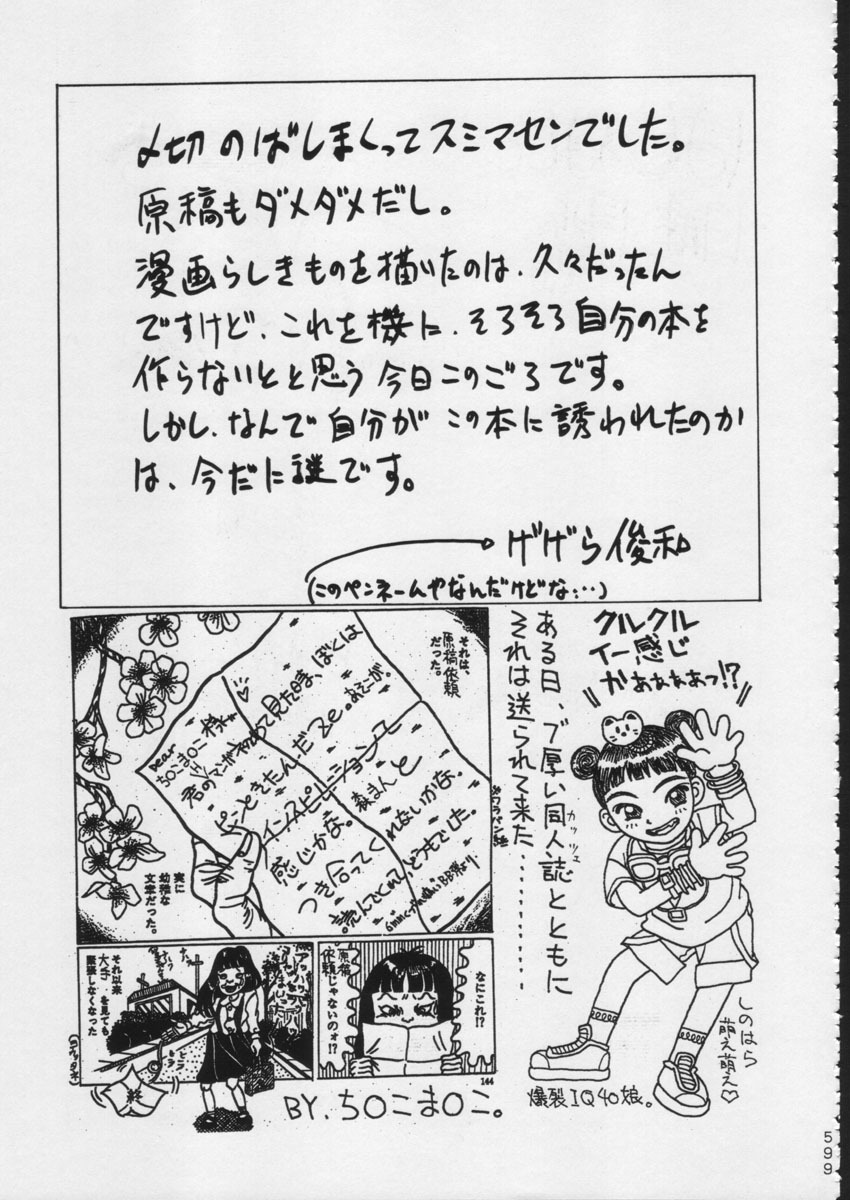 〆切のばしまくってスミマセンでした。
原稿もダメダメだし。
漫画らしきものを描いたのは、久々だったん
ですけど、これを機に、そろそろ自分の本を
作らないとと思う今日このごろです。
しかし、なんで自分がこの本に誘われたのか
は、今だに謎です。
げげら俊和
(このペンネームやなんだけどな…)
クルクル
イー感じ
かぁぁぁぁっ!?
ある日、ブ厚い同人誌とともに
カッツェ
それは送られて来た…………
それは、
原稿依頼
だった。
Dear
ち○こま○こ様
って見た時、ぼくは
ピンときたんだZe。
インスピレーション
感じかな。
つき合ってくれないかな。
読んでくれて、どうもでした。
実に
幼稚な
文章だった。
なにこれ!?
原稿
依頼じゃないのォ!?
144
それ以来
大手を見ても
緊張しなくなった
終
BY.ち○こま○こ。
しのはら
萌え萌え♡
爆裂IQ40娘。
599